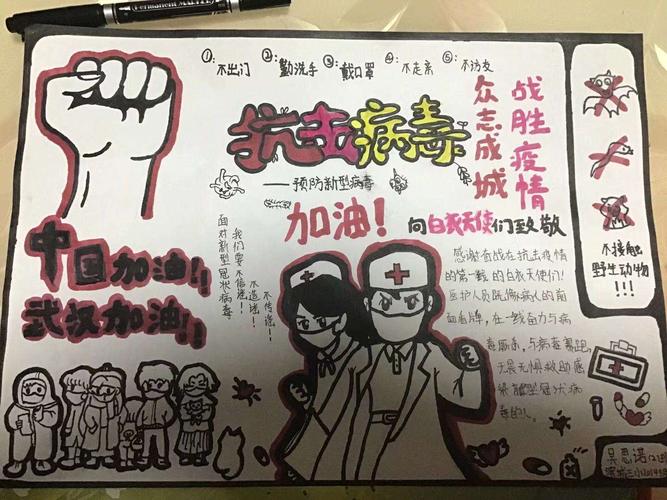 Permanent MARKER
①:不出门 ②:勤洗手 ③:戴口罩 ④:不走亲 ⑤:不访友
抗击病毒
——预防新型病毒
加油!
众志成城
战胜疫情
向白衣天使们致敬
中国加油!!
武汉加油!!
面对新型冠状病毒
我们要不信谣!
不造谣!
不传谣!
感谢奋战在抗击疫情
的第一线的白衣天使们!
医护人员
在一线奋力与病
毒厮杀,与病毒赛跑,
无畏无惧救助感
染新型冠状病
毒的人。
不接触
野生动物
!!!
吴思诺